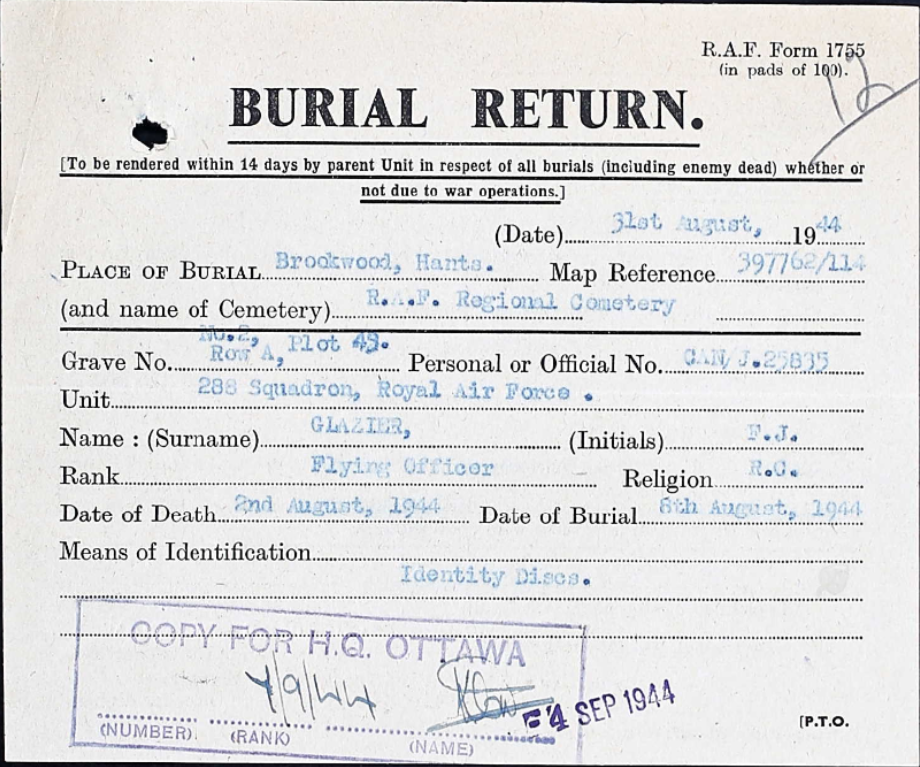 R.A.F. Form 1755
(in pads of 100).
12
BURIAL RETURN.
[To be rendered within 14 days by parent Unit in respect of all burials (including enemy dead) whether or
not due to war operations.]
(Date) 31st August, 1944
PLACE OF BURIAL Brookwood, Hants. Map Reference 397762/114
(and name of Cemetery) R.A.F. Regional Cemetery
No.2,
Grave No. Row A, Plot 43. Personal or Official No. CAN/J.25835
Unit 288 Squadron, Royal Air Force .
Name : (Surname) GLAZIER, (Initials) F.J.
Rank Flying Officer Religion R.C.
Date of Death 2nd August, 1944 Date of Burial 8th August, 1944
Means of Identification
Identity Discs.
COPY FOR H.Q. OTTAWA
4/9/44
-4 SEP 1944
(NUMBER). (RANK) (NAME)
[P.T.O.